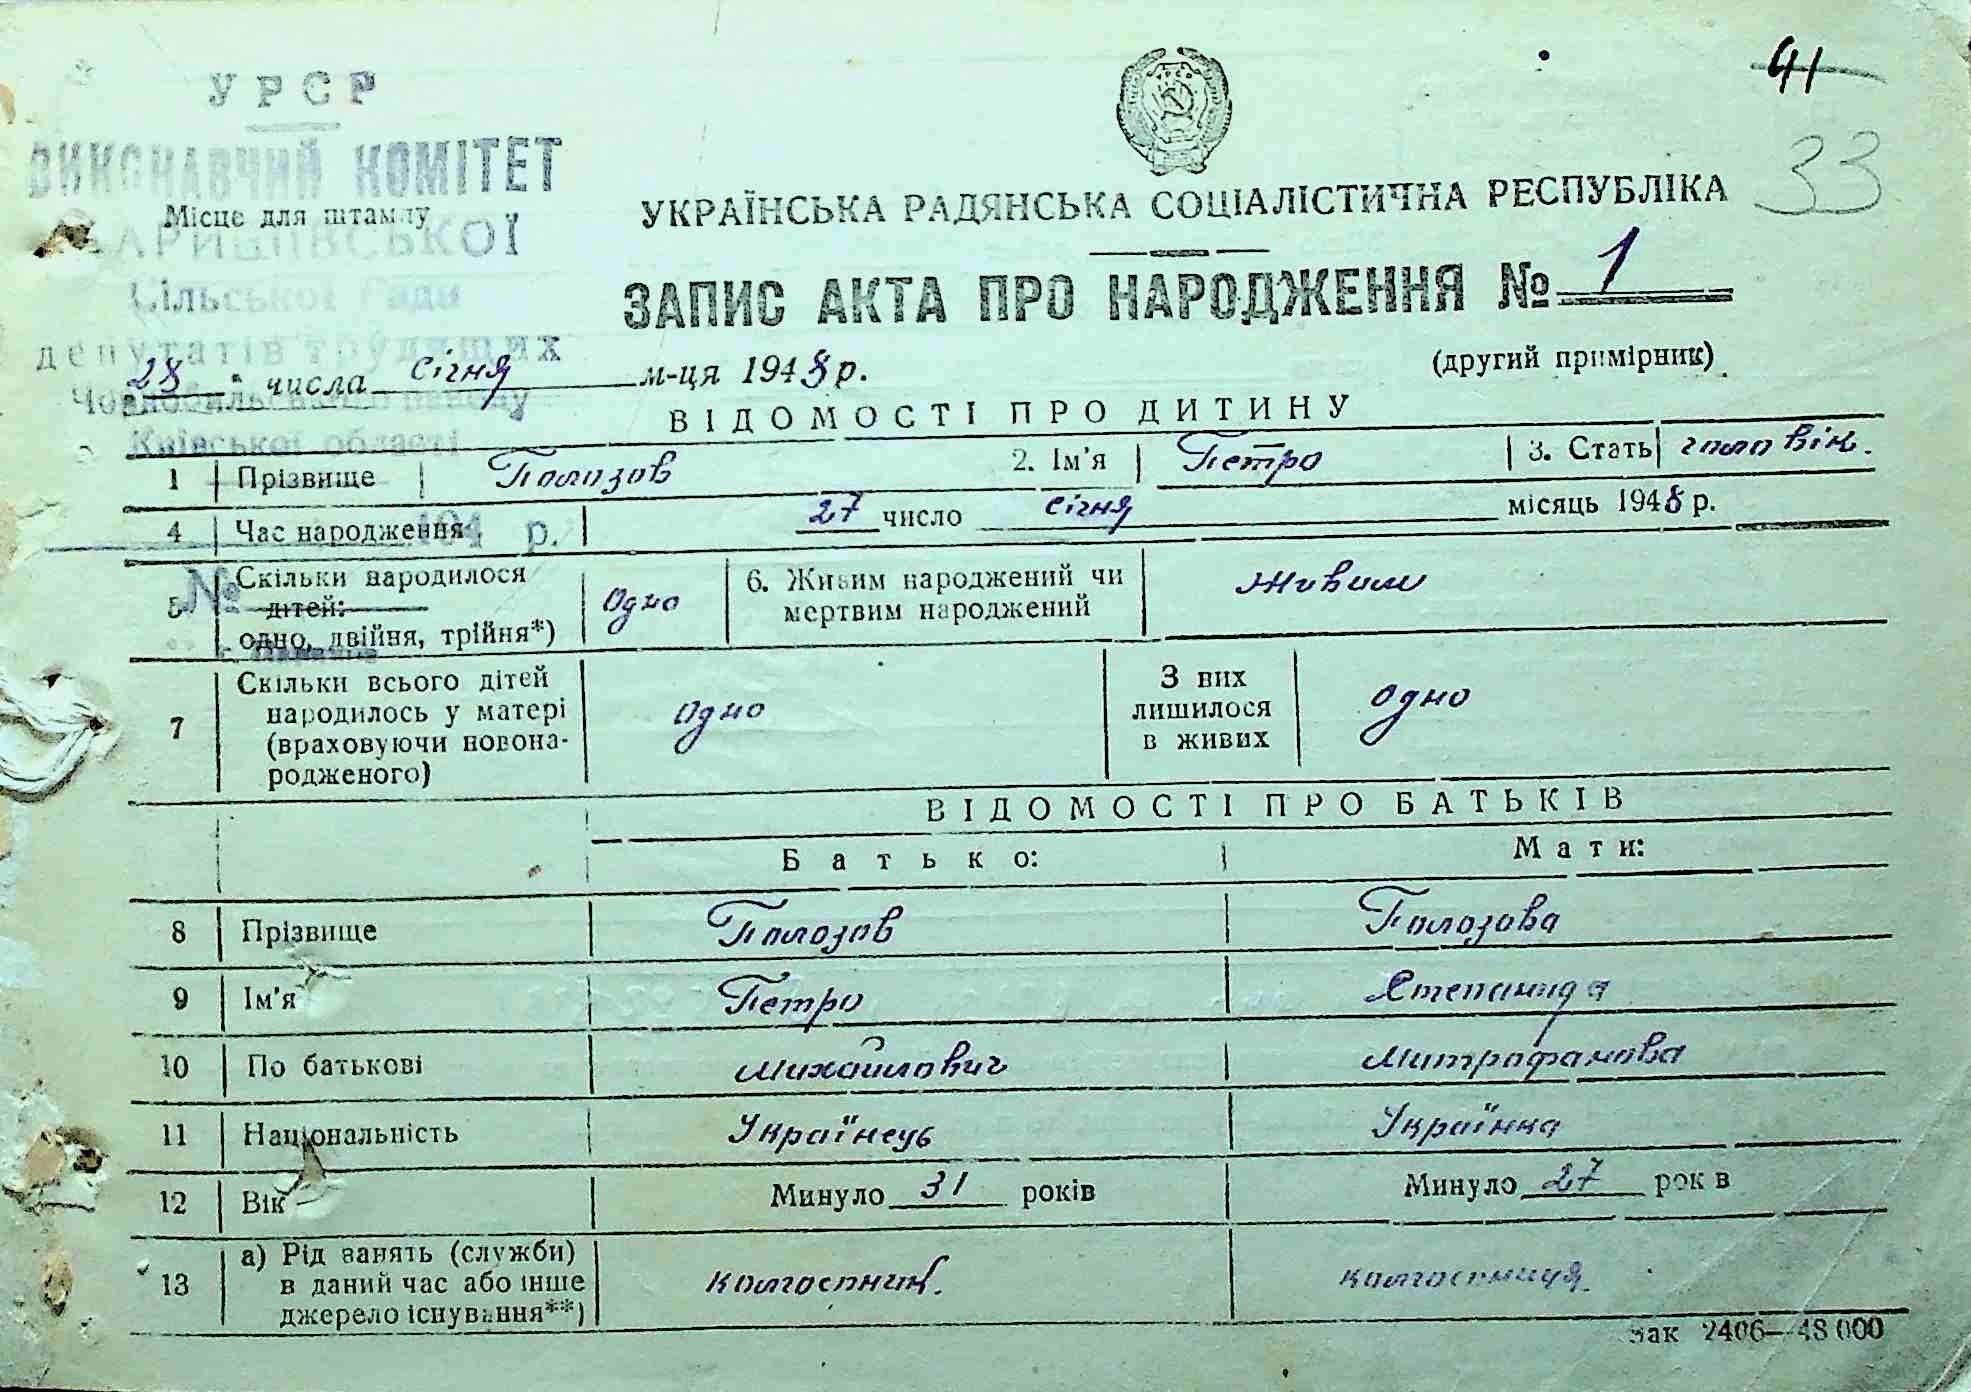 41
33
УРСР
ВИКОНАВЧИЙ КОМІТЕТ
Місце для штампу
Сільської Ради
депутатів трудящих
Чорнобильського району
Київської області
194 р.
№
УКРАЇНСЬКА РАДЯНСЬКА СОЦІАЛІСТИЧНА РЕСПУБЛІКА
ЗАПИС АКТА ПРО НАРОДЖЕННЯ № 1
28 числа січня м-ця 1948 р. (другий примірник)
ВІДОМОСТІ ПРО ДИТИНУ
1 Прізвище Полозов 2. Ім'я Петро 3. Стать чолов він.
4 Час народження 27 число січня місяць 1948 р.
5 Скільки народилося дітей: одно, двійня, трійня*) Одно 6. Живим народжений чи мертвим народжений Живим
7 Скільки всього дітей народилось у матері (враховуючи новонародженого) Одно З них лишилося в живих Одно
ВІДОМОСТІ ПРО БАТЬКІВ
Батько: Мати:
8 Прізвище Полозов Полозова
9 Ім'я Петро Степанида
10 По батькові Михайлович Митрофанова
11 Національність Українець Українка
12 Вік Минуло 31 років Минуло 27 років
13 а) Рід занять (служби) в даний час або інше джерело існування**) колгоспник. колгоспниця.
Зак 2406—48 000